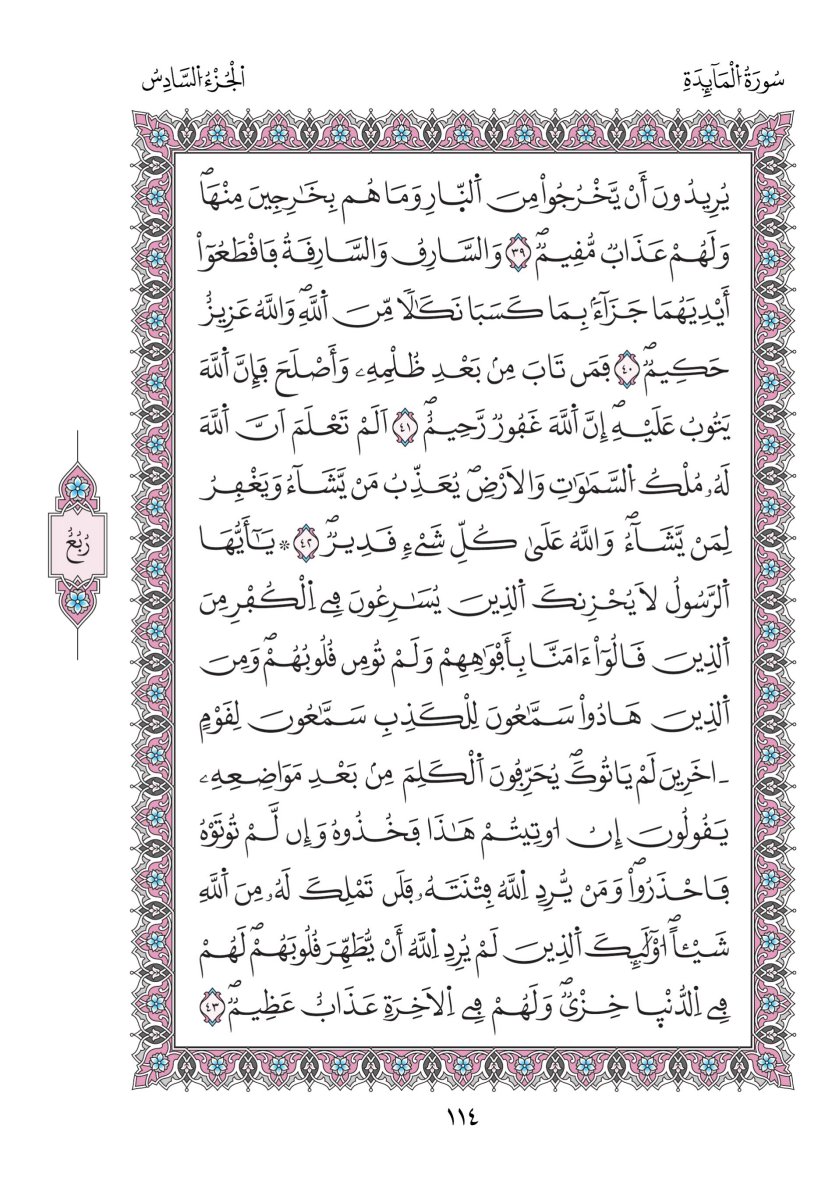 سُورَةُ الْمَآئِدَةِ
الْجُزْءُ السَّادِسُ
يُرِيدُونَ أَنْ يَّخْرُجُواْ مِنَ اَ۬لنّ۪ارِ وَمَا هُم بِخَٰرِجِينَ مِنْهَاۖ
وَلَهُمْ عَذَابٞ مُّقِيمٞۖ ٣٩ وَالسَّارِقُ وَالسَّارِقَةُ فَاقْطَعُوٓاْ
أَيْدِيَهُمَا جَزَآءَۢ بِمَا كَسَبَا نَكَٰلاٗ مِّنَ اَ۬للَّهِۖ وَاللَّهُ عَزِيزٌ
حَكِيمٞۖ ٤٠ فَمَن تَابَ مِنۢ بَعْدِ ظُلْمِهِۦ وَأَصْلَحَ فَإِنَّ اَ۬للَّهَ
يَتُوبُ عَلَيْهِۖ إِنَّ اَ۬للَّهَ غَفُورٞ رَّحِيمٌۖ ٤١ اَلَمْ تَعْلَمَ اَنَّ اَ۬للَّهَ
لَهُۥ مُلْكُ اُ۬لسَّمَٰوَٰتِ وَالَارْضِۖ يُعَذِّبُ مَنْ يَّشَآءُ وَيَغْفِرُ
لِمَنْ يَّشَآءُۖ وَاللَّهُ عَلَىٰ كُلِّ شَےْءٖ قَدِيرٞۖ ٤٢ ۞ يَٰٓأَيُّهَا
اَ۬لرَّسُولُ لَا يُحْزِنكَ اَ۬لذِينَ يُسَٰرِعُونَ فِے اِ۬لْكُفْرِ مِنَ
اَ۬لذِينَ قَالُوٓاْ ءَامَنَّا بِأَفْوَٰهِهِمْ وَلَمْ تُومِن قُلُوبُهُمْۖ وَمِنَ
اَ۬لذِينَ هَادُواْ سَمَّٰعُونَ لِلْكَذِبِ سَمَّٰعُونَ لِقَوْمٍ
ـ اخَرِينَ لَمْ يَاتُوكَۖ يُحَرِّفُونَ اَ۬لْكَلِمَ مِنۢ بَعْدِ مَوَاضِعِهِۦ
يَقُولُونَ إِنُ ا۟وتِيتُمْ هَٰذَا فَخُذُوهُ وَإِن لَّمْ تُوتَوْهُ
فَاحْذَرُواْۖ وَمَنْ يُّرِدِ اِ۬للَّهُ فِتْنَتَهُۥ فَلَن تَمْلِكَ لَهُۥ مِنَ اَ۬للَّهِ
شَيْـٔاًۖ ا۟وْلَٰٓئِكَ اَ۬لذِينَ لَمْ يُرِدِ اِ۬للَّهُ أَنْ يُّطَهِّرَ قُلُوبَهُمْۖ لَهُمْ
فِے اِ۬لدُّنْي۪ا خِزْيٞۖ وَلَهُمْ فِے اِ۬لَاخِرَةِ عَذَابٌ عَظِيمٞۖ ٤٣
رُبُعُ
١١٤